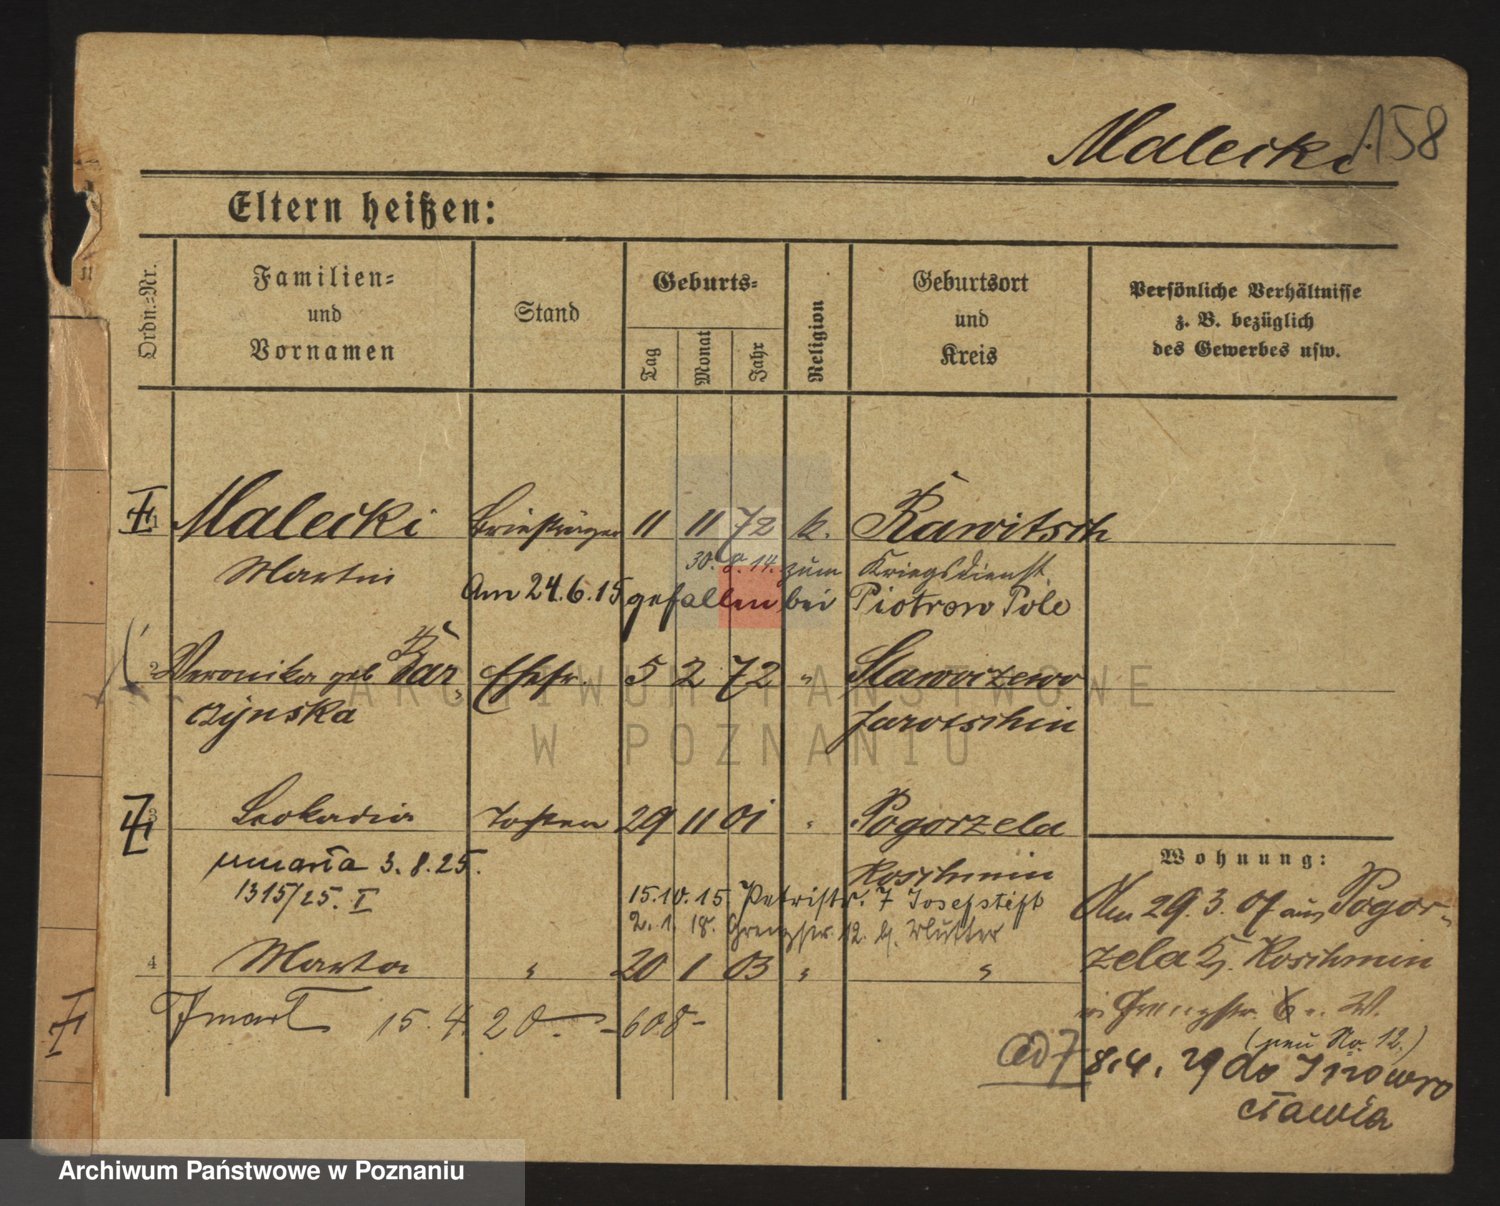 Malecki 158
Eltern heißen:
Ordn.=Nr.
Familien=
und
Vornamen
Stand
Geburts=
Tag
Monat
Jahr
Religion
Geburtsort
und
Kreis
Persönliche Verhältnisse
z. B. bezüglich
des Gewerbes usw.
1 Malecki Briefträger 11 11 72 k. Rawitsch
Martin 30. 8. 14. zum Kriegsdienst
Am 24.6.15 gefallen bei Piotrow Pole
2 Veronika geb Kar- Ehefr. 5 2 72 " Slawoszewo
czynska Jarotschin
ARCHIWUM PAŃSTWOWE
W POZNANIU
3 Leokadia Tochter 29 11 01 " Pogorzela
umarła 3. 8. 25. Koschmin
1315/25. I
15.10.15. Petristr. 7 Josefstift
2. 1. 18. Grenzstr. 12. b. Mutter
4 Marta " 20 1 03 " "
15. 4. 20 - 608 -
Wohnung:
Am 29. 3. 07 aus Pogor-
zela Kr. Koschmin
Grenzstr. 6 W.
(neu No. 12.)
ad 7 8.4. 29 do Inowro
cławia
Archiwum Państwowe w Poznaniu